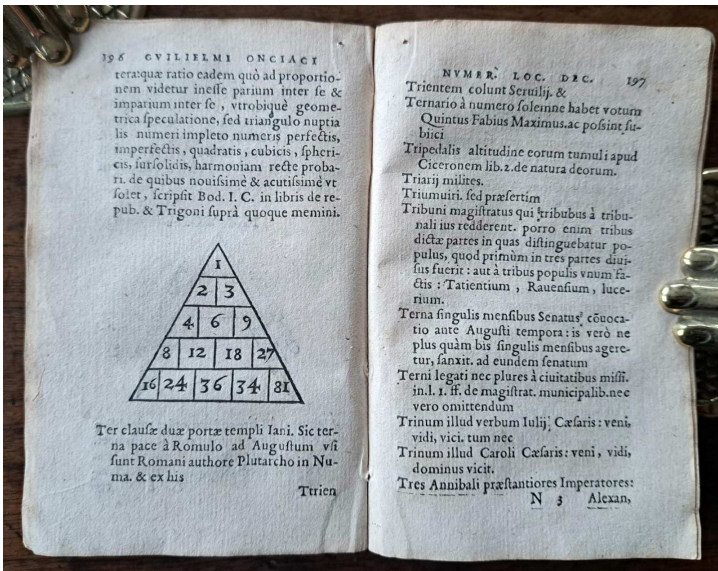 196 GVILIELMI ONCIACI
tera: quæ ratio eadem quò ad proportio-
nem videtur inesse parium inter se &
imparium inter se, vtrobiquè geome-
trica speculatione, sed triangulo nuptia
lis numeri impleto numeris perfectis,
imperfectis, quadratis, cubicis, spheri-
cis, sursolidis, harmoniam recte proba-
ri. de quibus nouissimè & acutissimè vt
solet, scripsit Bod. I. C. in libris de re-
pub. & Trigoni suprà quoque memini.
1
2 3
4 6 9
8 12 18 27
16 24 36 34 81
Ter clausæ duæ portæ templi Iani. Sic ter-
na pace à Romulo ad Augustum vsi
sunt Romani authore Plutarcho in Nu-
ma. & ex his
Ttrien
NVMER. LOC. DEC. 197
Trientem colunt Seruilij. &
Ternario à numero solemne habet votum
Quintus Fabius Maximus. ac possint su-
biici
Tripedalis altitudine eorum tumuli apud
Ciceronem lib. 2. de natura deorum.
Triarij milites.
Triumuiri. sed præsertim
Tribuni magistratus qui tribubus à tribu-
nali ius redderent. porro enim tribus
dictæ partes in quas distinguebatur po-
pulus, quod primùm in tres partes diui-
sus fuerit : aut à tribus populis vnum fa-
ctis : Tatientium, Rauensium, luce-
rium.
Terna singulis mensibus Senatus cōuoca-
tio ante Augusti tempora : is verò ne
plus quàm bis singulis mensibus agere-
tur, sanxit. ad eundem senatum
Terni legati nec plures à ciuitatibus missi.
in. l. 1. ff. de magistrat. municipalib. nec
vero omittendum
Trinum illud verbum Iulij Cæsaris : veni,
vidi, vici. tum nec
Trinum illud Caroli Cæsaris : veni, vidi,
dominus vicit.
Tres Annibali præstantiores Imperatores:
N 3 Alexan,